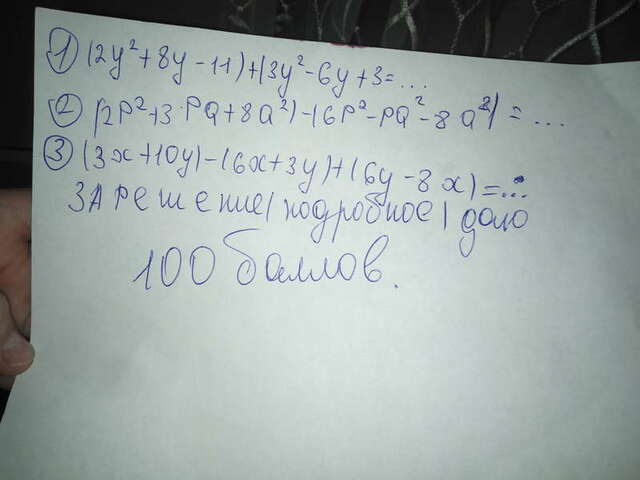 ① (2y²+8y-11)+(3y²-6y+3=...
② (2p²+3pq+8a²)-(6p²-pq²-8a²)=...
③ (3x+10y)-(6x+3y)+(6y-8x)=...
ЗА РЕШЕНИЕ(подробное) даю
100 баллов.